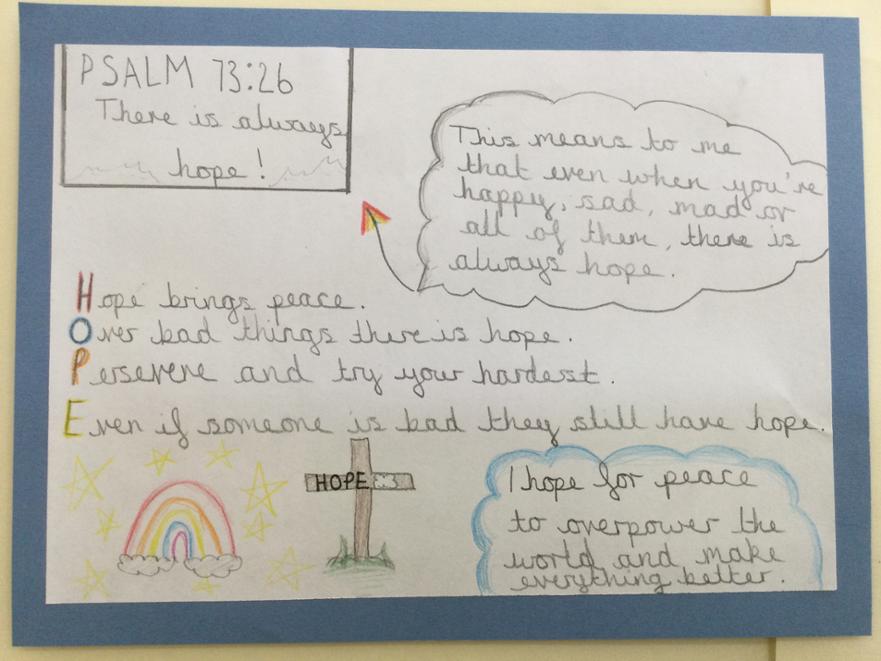 PSALM 73:26
There is always
hope!
This means to me
that even when you're
happy, sad, mad or
all of them, there is
always hope.
Hope brings peace.
Over bad things there is hope.
Persevere and try your hardest.
Even if someone is bad they still have hope.
HOPE :3
I hope for peace
to overpower the
world and make
everything better.